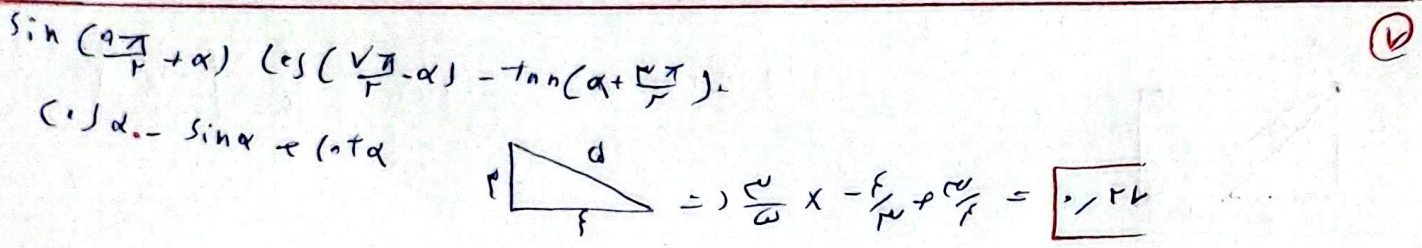 ۷
sin (۹π/۲ + α) cos (۷π/۲ - α) - tan (α + ۳π/۲) =
cos α . - sin α + cot α
۳ ۵ ۴ => ۳/۵ × - ۴/۳ + ۳/۴ = ۰,۲۷